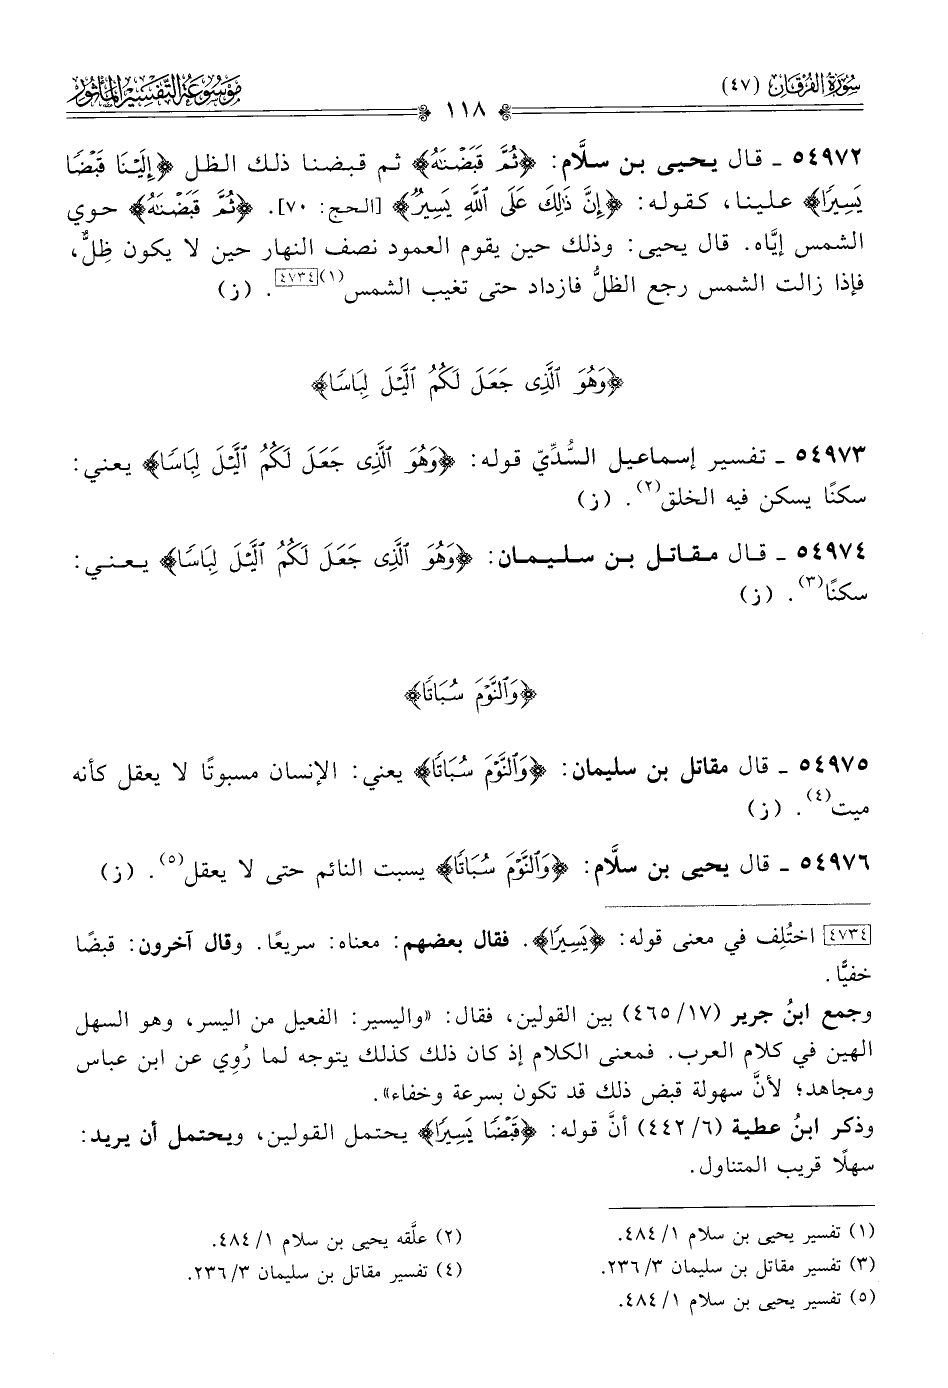 سُورَةُ الفُرْقَان (٤٧)
١١٨
مَوْسُوعَةُ التَّفْسِيرِ المَأْثُورِ
٥٤٩٧٢ ـ قال يحيى بن سلَّام: ﴿ثُمَّ قَبَضْنَٰهُ﴾ ثم قبضنا ذلك الظل ﴿إِلَيْنَا قَبْضًا
يَسِيرًا﴾ علينا، كقوله: ﴿إِنَّ ذَٰلِكَ عَلَى ٱللَّهِ يَسِيرٌ﴾ [الحج: ٧٠]. ﴿ثُمَّ قَبَضْنَٰهُ﴾ حوي
الشمس إيَّاه. قال يحيى: وذلك حين يقوم العمود نصف النهار حين لا يكون ظِلٌّ،
فإذا زالت الشمس رجع الظلُّ فازداد حتى تغيب الشمس(١)[٤٧٣٤]. (ز)
﴿وَهُوَ ٱلَّذِى جَعَلَ لَكُمُ ٱلَّيْلَ لِبَاسًا﴾
٥٤٩٧٣ ـ تفسير إسماعيل السُّدِّيّ قوله: ﴿وَهُوَ ٱلَّذِى جَعَلَ لَكُمُ ٱلَّيْلَ لِبَاسًا﴾ يعني:
سكنًا يسكن فيه الخلق(٢). (ز)
٥٤٩٧٤ ـ قال مقاتل بن سليمان: ﴿وَهُوَ ٱلَّذِى جَعَلَ لَكُمُ ٱلَّيْلَ لِبَاسًا﴾ يعني:
سكنًا(٣). (ز)
﴿وَٱلنَّوْمَ سُبَاتًا﴾
٥٤٩٧٥ ـ قال مقاتل بن سليمان: ﴿وَٱلنَّوْمَ سُبَاتًا﴾ يعني: الإنسان مسبوتًا لا يعقل كأنه
ميت(٤). (ز)
٥٤٩٧٦ ـ قال يحيى بن سلَّام: ﴿وَٱلنَّوْمَ سُبَاتًا﴾ يسبت النائم حتى لا يعقل(٥). (ز)
[٤٧٣٤] اختُلِف في معنى قوله: ﴿يَسِيرًا﴾. فقال بعضهم: معناه: سريعًا. وقال آخرون: قبضًا
خفيًّا.
وجمع ابنُ جرير (١٧/ ٤٦٥) بين القولين، فقال: «واليسير: الفعيل من اليسر، وهو السهل
الهين في كلام العرب. فمعنى الكلام إذ كان ذلك كذلك يتوجه لما رُوِي عن ابن عباس
ومجاهد؛ لأنَّ سهولة قبض ذلك قد تكون بسرعة وخفاء».
وذكر ابنُ عطية (٦/ ٤٤٢) أنَّ قوله: ﴿قَبْضًا يَسِيرًا﴾ يحتمل القولين، ويحتمل أن يريد:
سهلًا قريب المتناول.
(١) تفسير يحيى بن سلام ١/ ٤٨٤.
(٢) علَّقه يحيى بن سلام ١/ ٤٨٤.
(٣) تفسير مقاتل بن سليمان ٣/ ٢٣٦.
(٤) تفسير مقاتل بن سليمان ٣/ ٢٣٦.
(٥) تفسير يحيى بن سلام ١/ ٤٨٤.